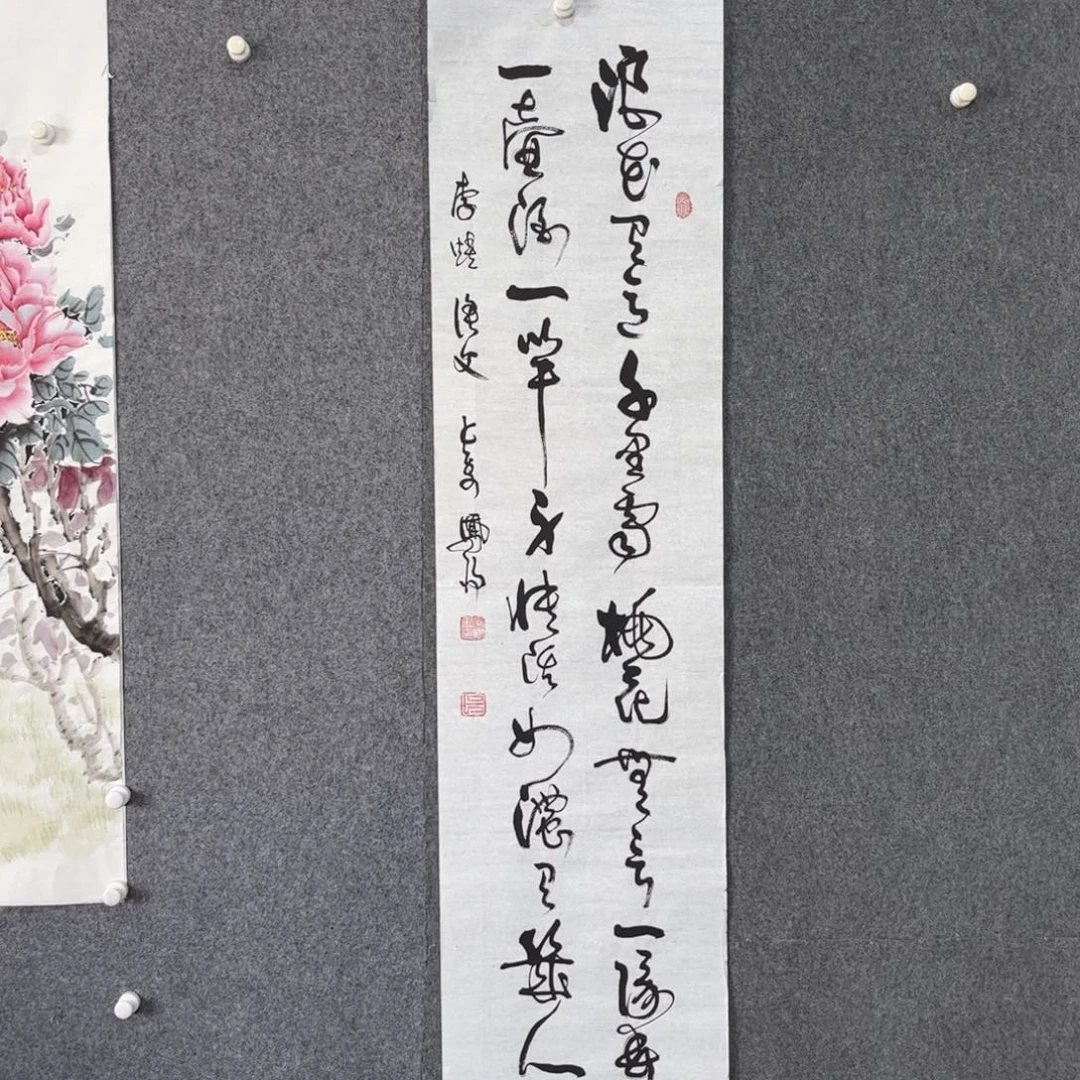 浪花有意千里雪桃花無言一隊春
一壺酒一竿身快活如儂有幾人
李煜漁父